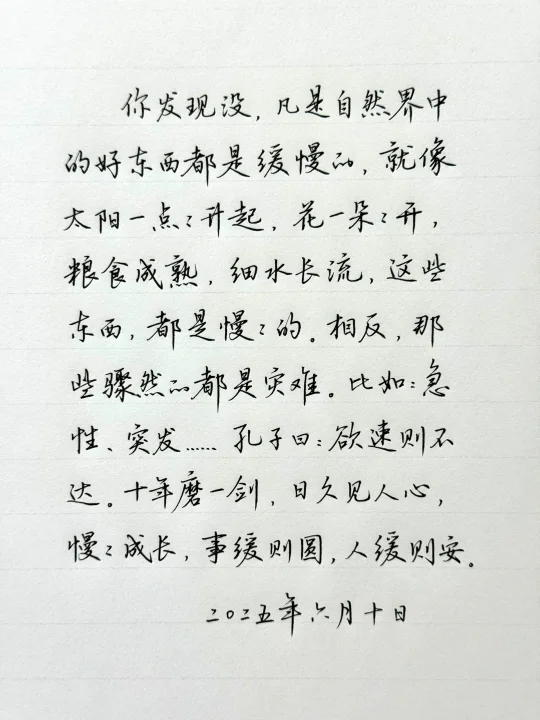 你发现没，凡是自然界中
的好东西都是缓慢的，就像
太阳一点〻升起，花一朵〻开，
粮食成熟，细水长流，这些
东西，都是慢〻的。相反，那
些骤然的都是灾难。比如：急
性、突发…… 孔子曰：欲速则不
达。十年磨一剑，日久见人心，
慢〻成长，事缓则圆，人缓则安。
二〇二五年六月十日